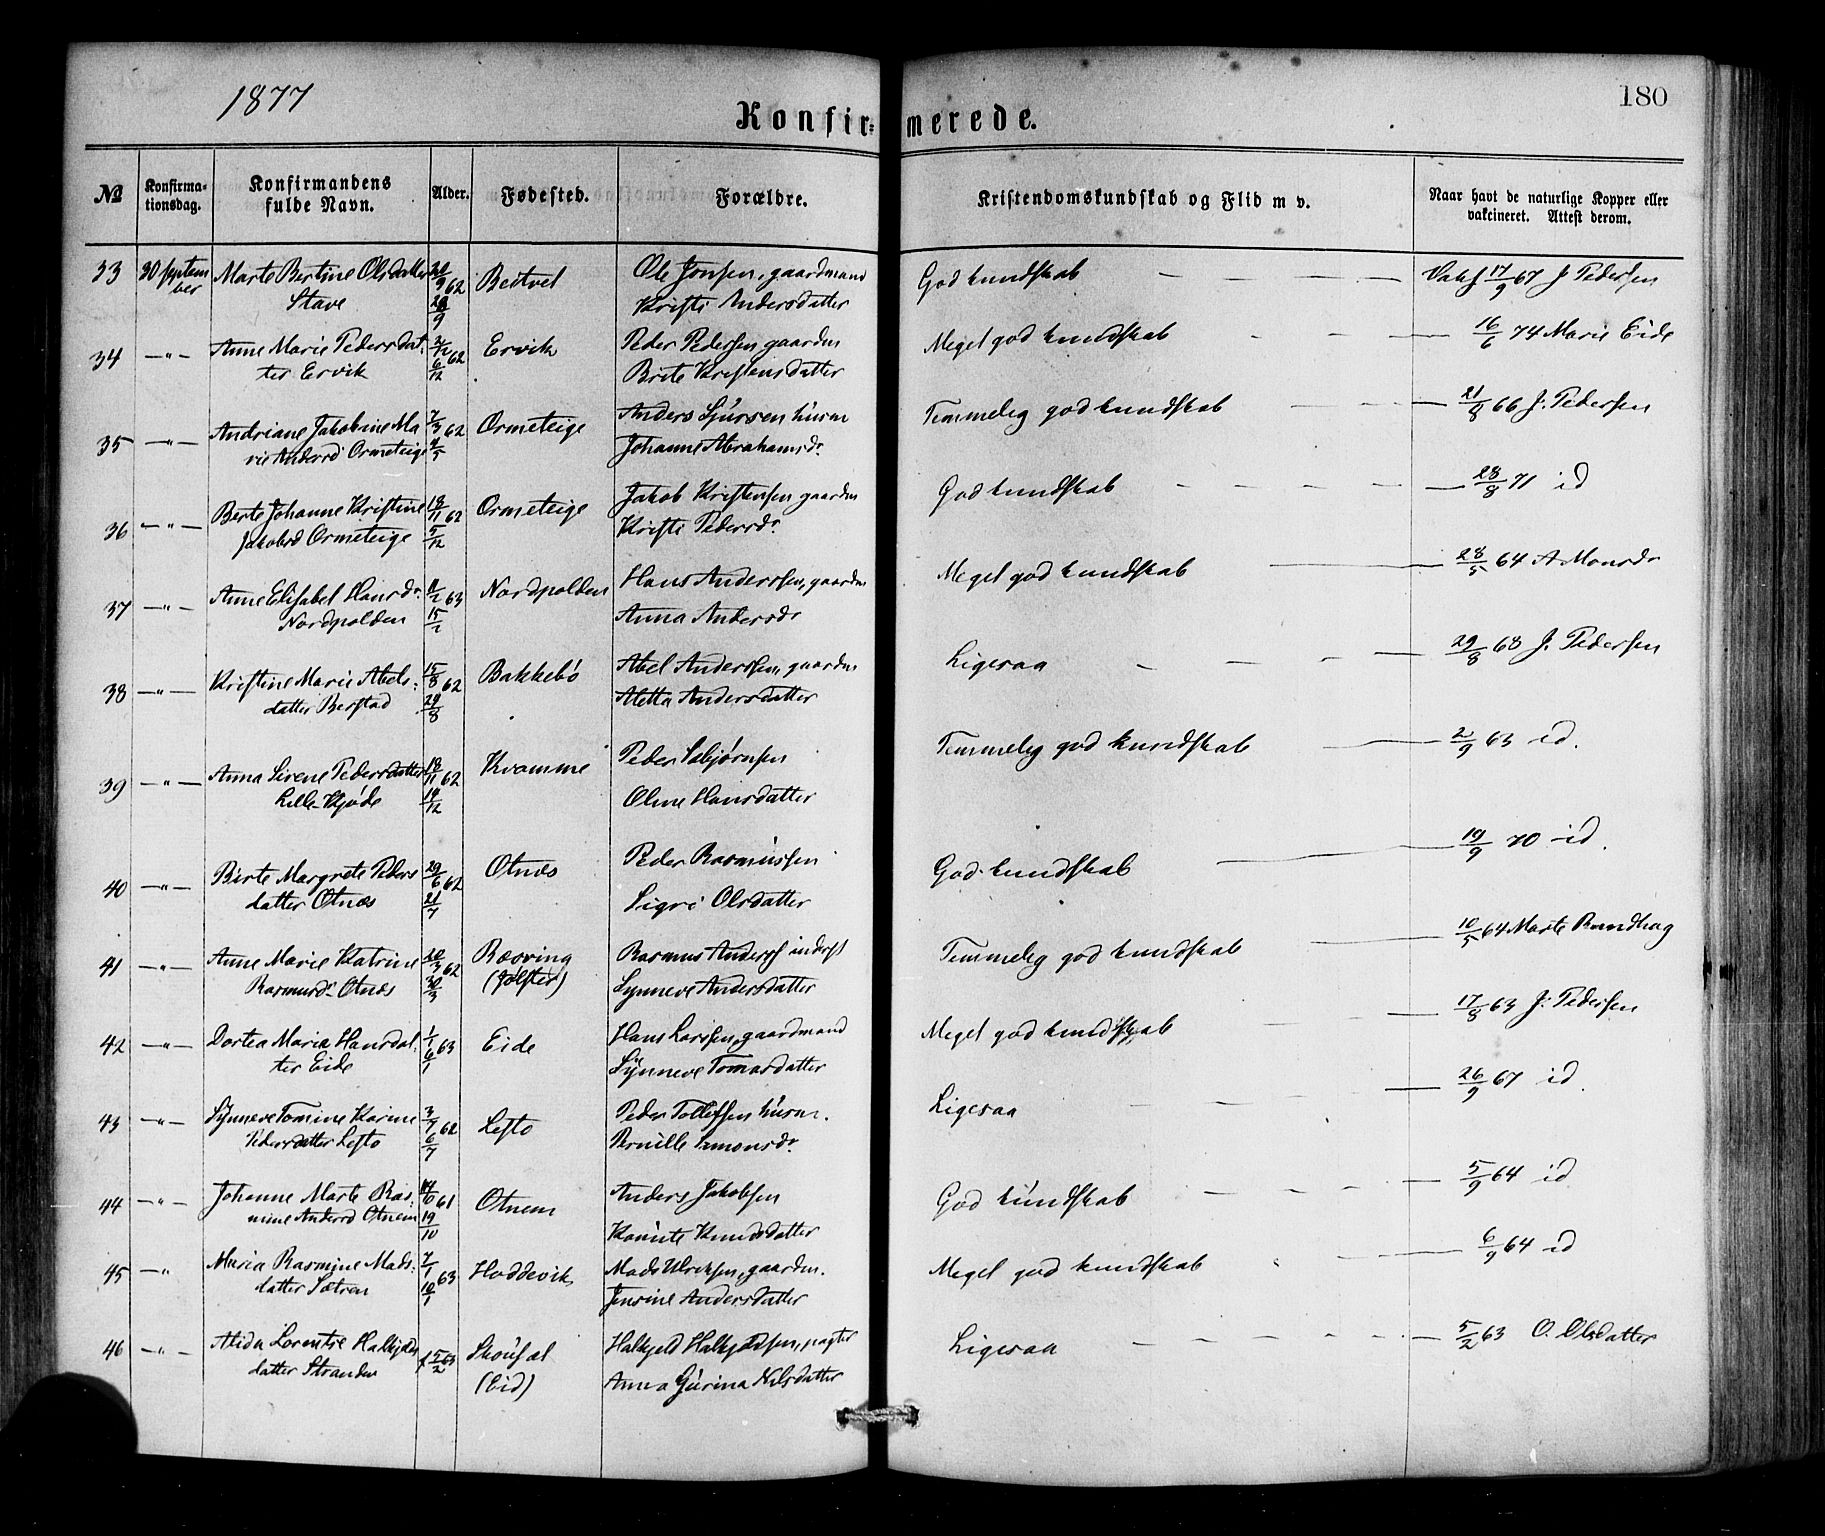 1877
180
Konfirmerede.
No
Konfirmationsdag.
Konfirmandens fulde Navn.
Alder.
Fødested.
Forældre.
Kristendomskundskab og Flid m v.
Naar havt de naturlige Kopper eller vakcineret. Attest derom.
33 30 septem Marte Bertine Olsdatter 62 Bedtvet Ole Jonsen, gaardmand God kundskab — — — — Vakf 17/9 67 J Pedersen
ber Stave Kristi Andersdatter
34 —"— Anne Marie Pedersdat: 62 Ervik Peder Pedersen gaardm Meget god kundskab — — — 16/6 74 Marie Eide
ter Ervik 6/12 Brite Kristensdatter
35 —"— Andriane Jakobine Ma 7/3 62 Ormeteige Anders Sjursen husm Temmelig god kundskab — — — 21/8 66 J: Pedersen
rie Andersd Ormeteige Johanne Abrahamsdr
36 —"— Berte Johanne Kristine 18/11 62 Ormeteige Jakob Kristensen gaardm God kundskab — — — — 28/8 71 id
Jakobsd Ormeteige 5/12 Kristi Pedersdr
37 —"— Anne Elisabet Hansdr 63 Nordpolden Hans Anderssen, gaardm Meget god kundskab — — 28/5 64 A Monsdr
Nordpolden Anna Andersdr
38 —"— Kristine Marie Abels: 15/8 62 Bakkebø Abel Anderssen, gaardm Ligesaa — — — — 29/8 68 J. Pedersen
datter Berstad 24/8 Aletta Andersdatter
39 —"— Anna Sirene Pedersdatter 18/11 62 Kvamme Peder Sebjørnsen Temmelig god kundskab — — 2/9 63 id.
Lille-Kjøde 14/12 Oline Hansdatter
40 —"— Birte Margrete Peders 29/6 62 Otnæs Peder Rasmussen God kundskab — — 19/9 70 id.
datter Otnæs 21/7 Sigri Olsdatter
41 —"— Anne Marie Katrine 20/3 62 Rasmus Andersf inderst Temmelig god kundskab — — 10/5 64 Marte
Rasmusdr Otnæs 30/3 (Jølster) Synneve Andersdatter
42 —"— Dortea Maria Hansdat: 1/1 63 Eide Hans Larssen, gaardmand Meget god kundskab — — — 17/8 63 J: Pedersen
ter Eide 6/1 Synneve Tomasdatter
43 —"— Synneve Tomine Karine 3/7 62 Lefto Peder Tollefsen husm. Ligesaa — — — — 26/9 67 id.
Pedersdatter Lefto 6/7 Pernille Simonsdr
44 —"— Johanne Marte Ras: 14/10 61 Otnem Anders Jakobsen God kundskab — — — — 5/9 64 id
mine Andersd Otnem 19/10 Knudsdatter
45 —" Maria Rasmine Mads: 7/1 63 Hoddevik Mads Ulriksen, gaardm. Meget god kundskab — — 6/9 64 id
datter Sætren 10/1 Jensine Andersdatter
46 —"— Alida Lorentse Halkjelds 5/2 63 Halkjeld Halkjeldsen, pagter Ligesaa — — — — — 5/2 63 O. Olsdatter
datter Stranden (Eid) Anna Gurina Nilsdatter